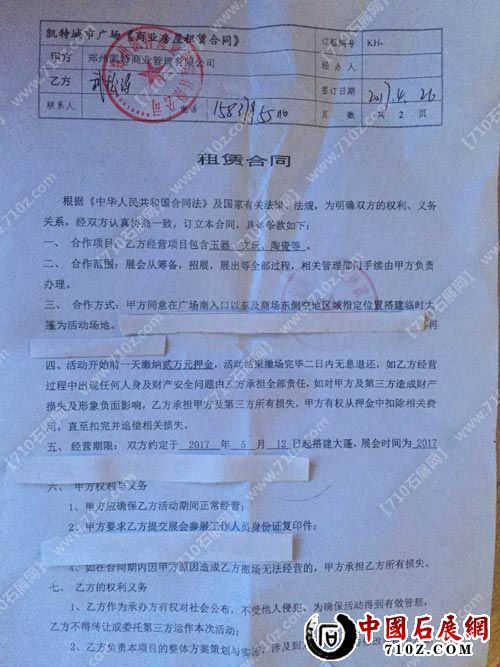 凯特城市广场《商业房屋租赁合同》 订租编号 KH-
甲方 郑州凯特商业管理有限公司 经办人
乙方 签订日期 2017.4.26
联系人 电话 页数 共2页
租赁合同
根据《中华人民共和国合同法》及国家有关法律、法规，为明确双方的权利、义务
关系，经双方认真协商一致，订立本合同，具体条款如下：
一、合作项目：乙方经营项目包含玉器、文玩、陶瓷等。
二、合作范围：展会从筹备，招展，展出等全部过程，相关管理部门手续由甲方负责
办理。
三、合作方式：甲方同意在广场南入口以东及商场东侧空地区域指定位置搭建临时大
篷为活动场地。
再
四、活动开始前一天缴纳贰万元押金，活动结束撤场完毕二日内无息退还，如乙方经营
过程中出现任何人身及财产安全问题由乙方承担全部责任，如对甲方及第三方造成财产
损失及形象负面影响，乙方承担甲方及第三方所有损失，甲方有权从押金中扣除相关费
用，直至扣完并追偿相关损失。
五、经营期限：双方约定于 2017 年 5 月 12 日起搭建大蓬，展会时间为 2017
六、甲方权利与义务
1、甲方应确保乙方活动期间正常经营；
2、甲方要求乙方提交展会参展工作人员身份证复印件；
4、如在合同期内因甲方原因造成乙方撤场无法经营的，甲方承担乙方所有损失。
七、乙方的权利义务
1、乙方作为承办方有权对社会公布，不受他人侵犯，为确保活动得到有效管理，
乙方不得转让或委托第三方运作本次活动；
2、乙方负责本项目的整体方案策划与实施，涉及到
中國石展网
710z.com